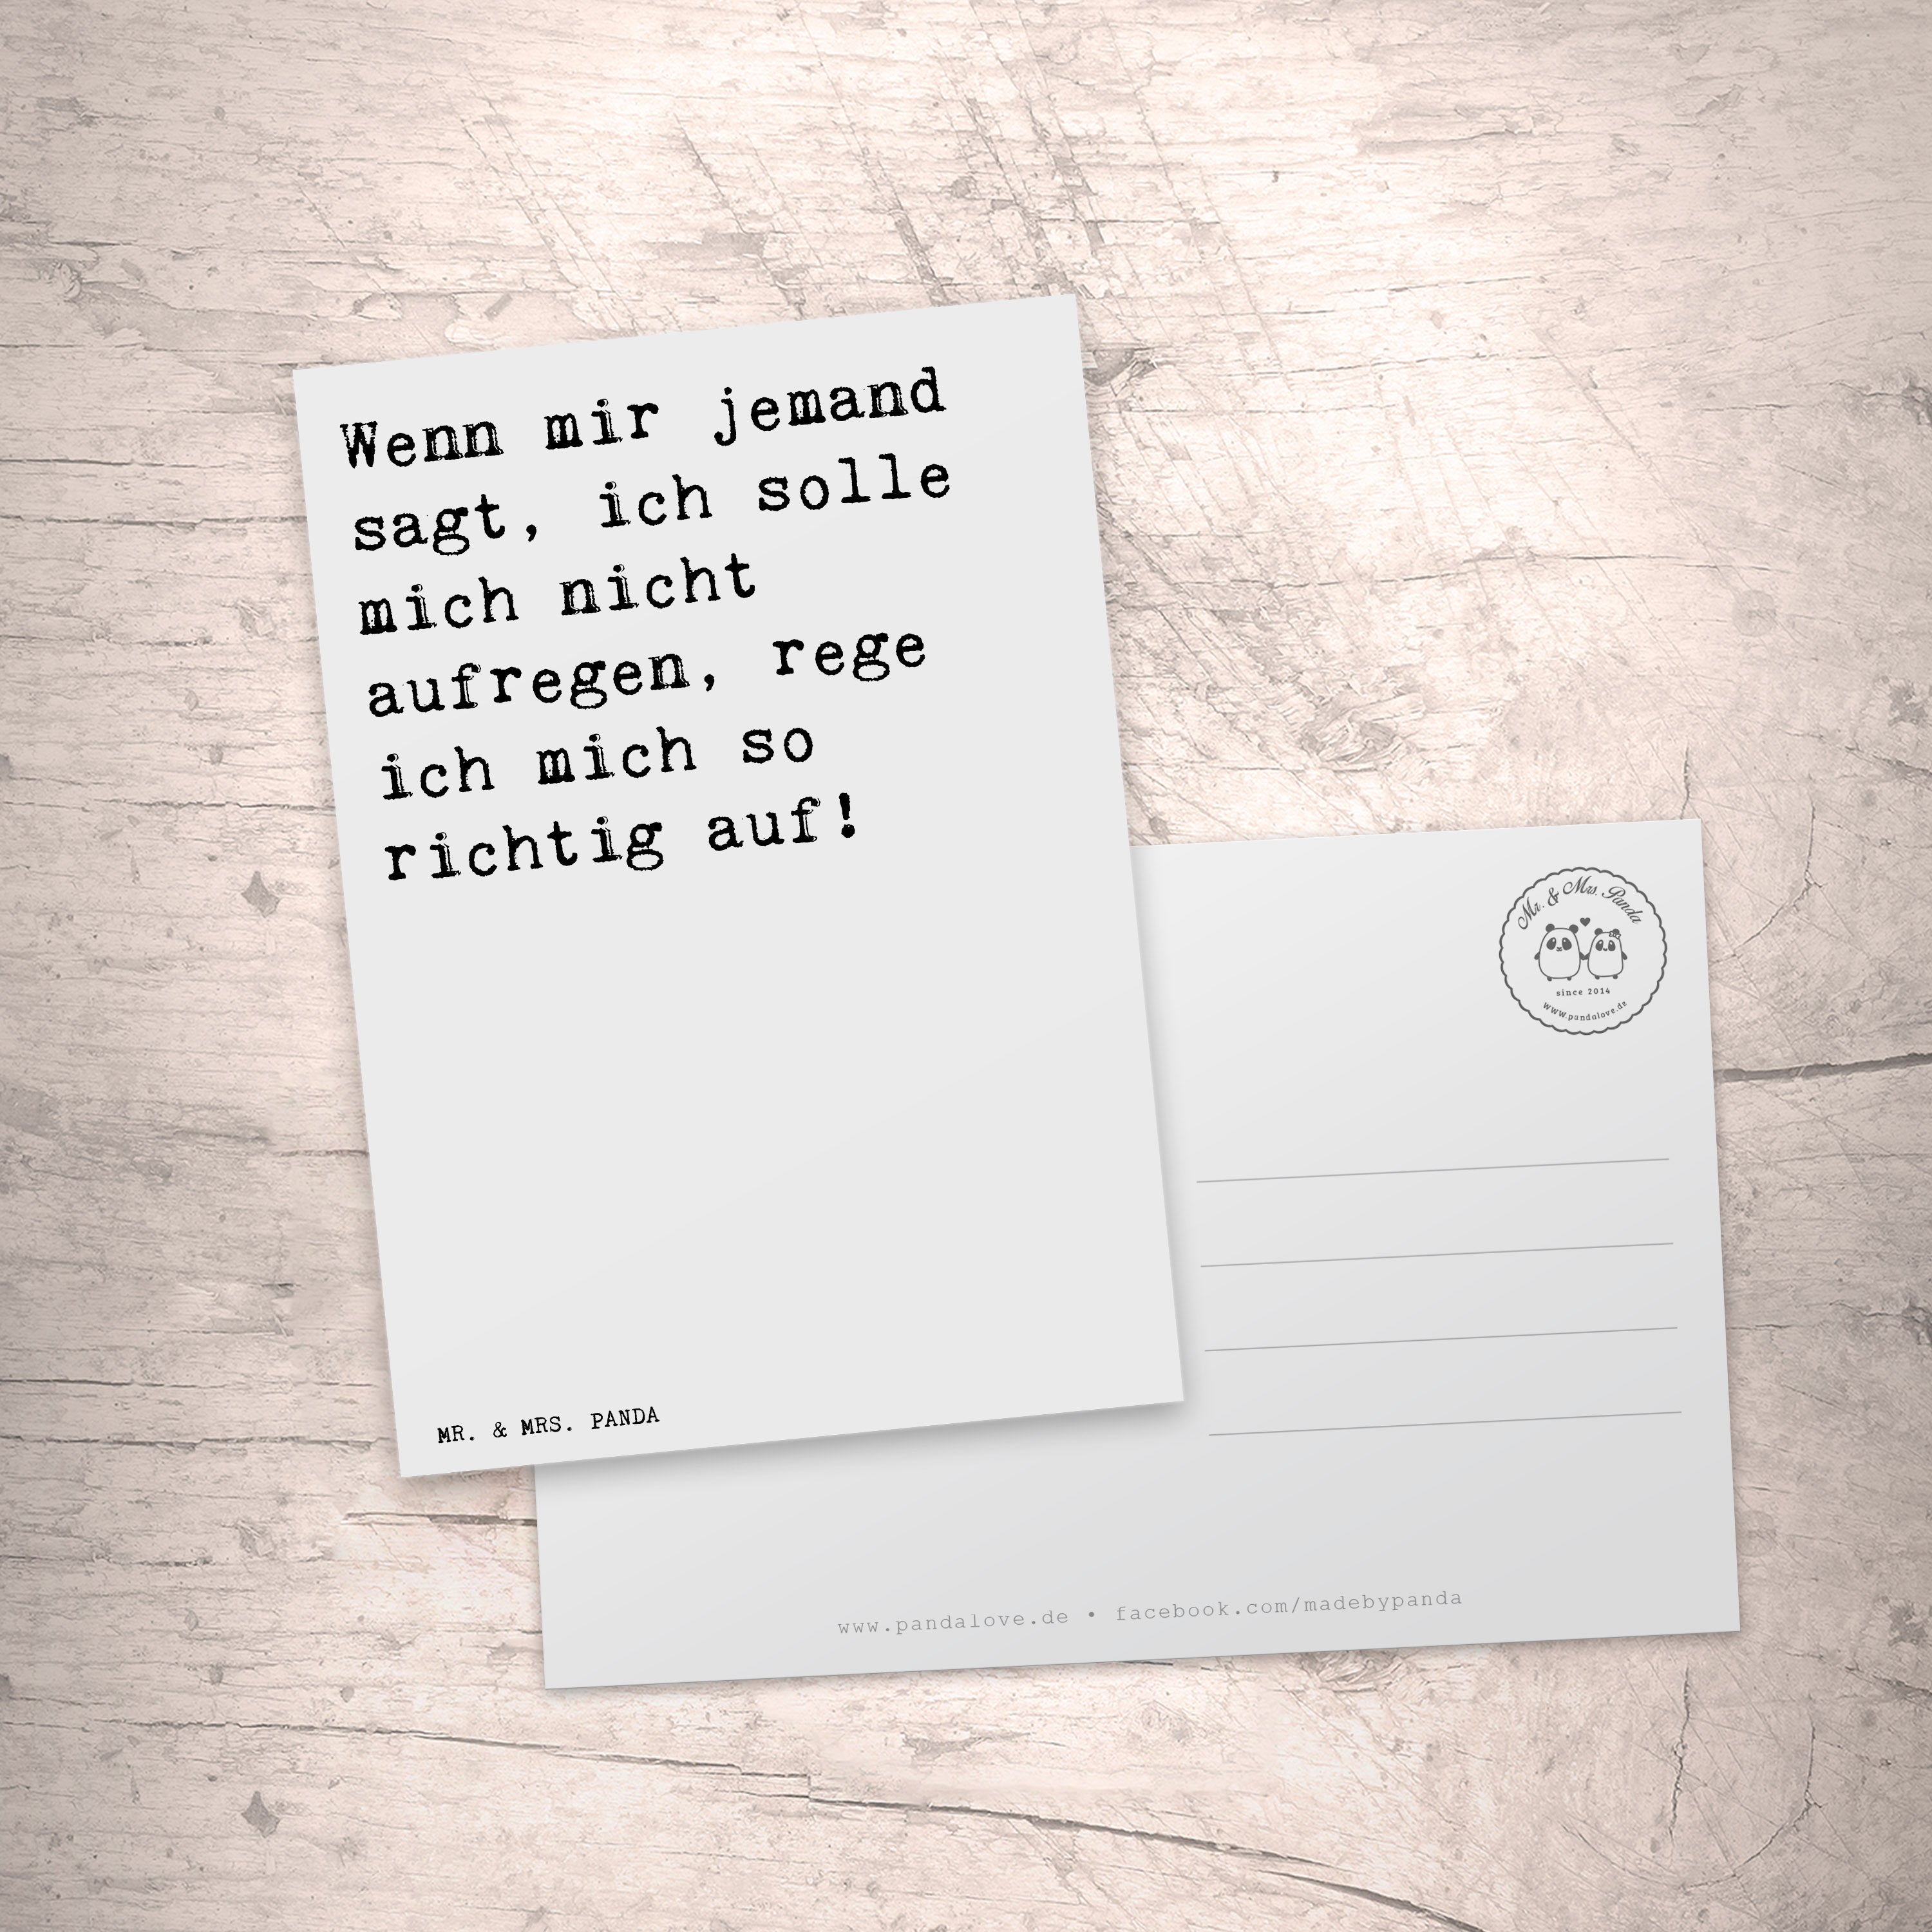 Wenn mir jemand
sagt, ich solle
mich nicht
aufregen, rege
ich mich so
richtig auf!
MR. & MRS. PANDA
Mr. & Mrs. Panda
since 2014
www.pandalove.de
www.pandalove.de • facebook.com/madebypanda